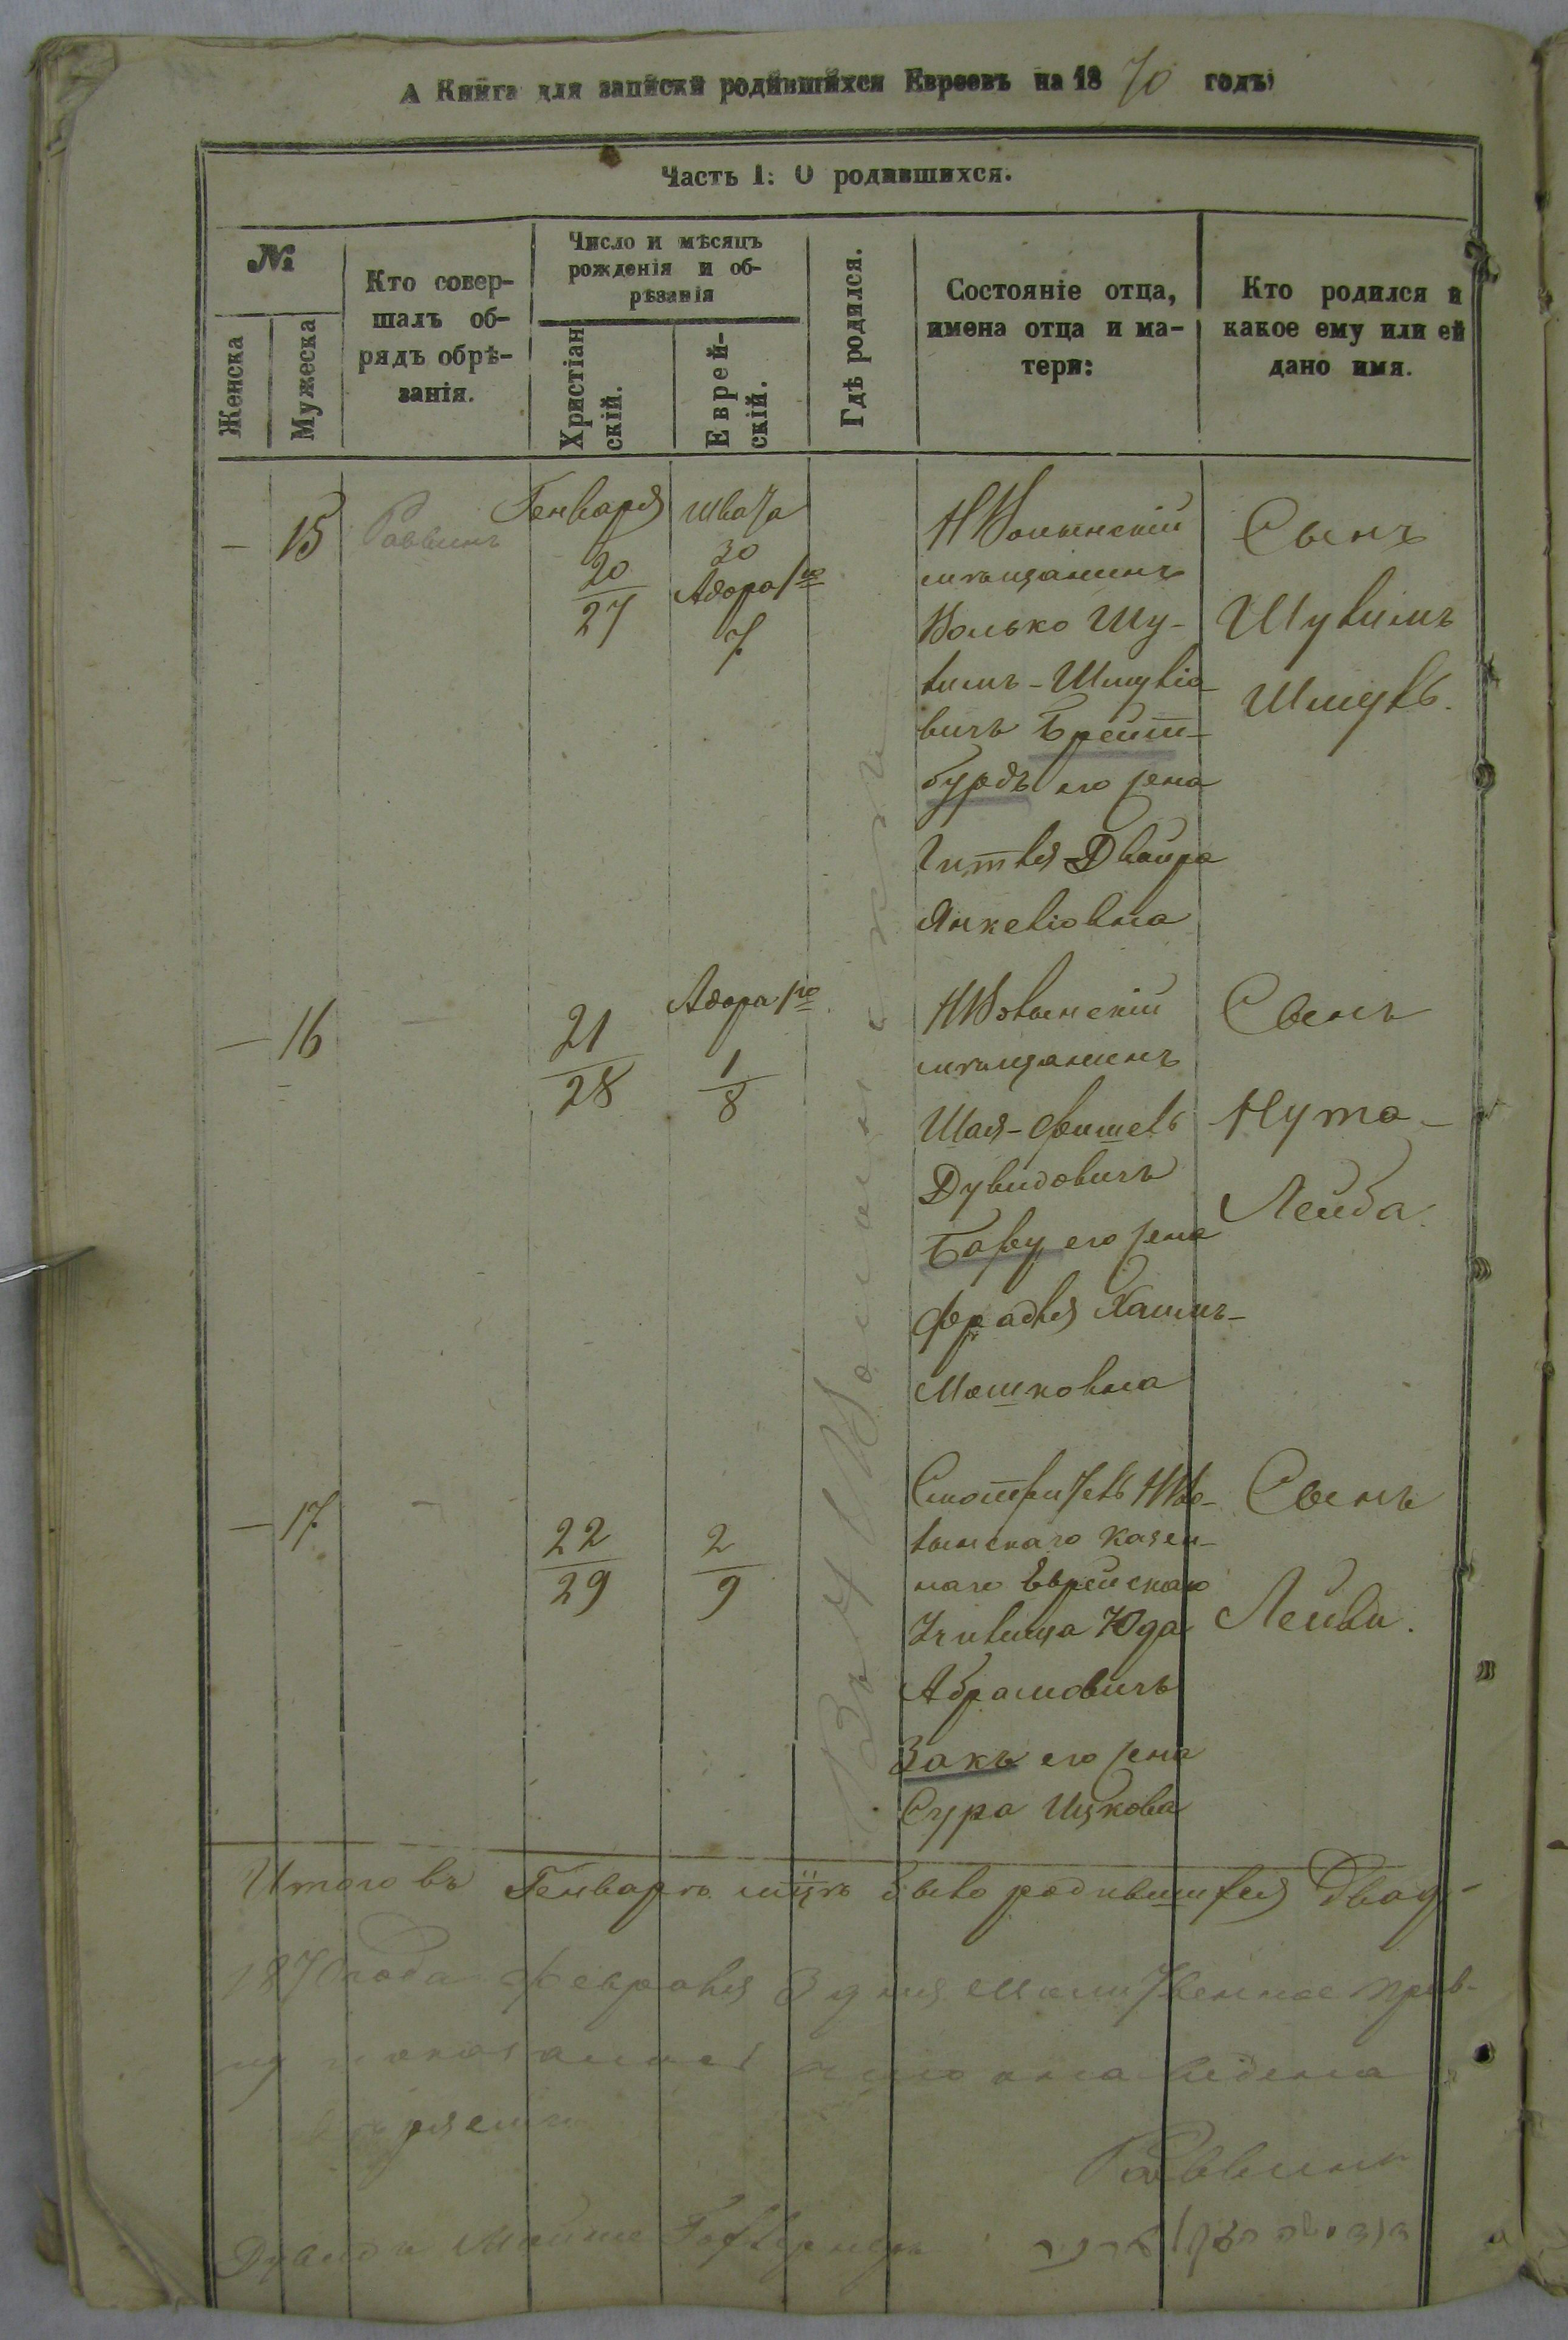 А Книга для записки родившихся Евреевъ на 1870 годъ
Часть I: О родившихся.
№
Женска
Мужеска
Кто совер-
шалъ об-
рядъ обрѣ-
занія.
Число и мѣсяцъ
рожденія и об-
рѣзанія
Христіан
скій.
Еврей-
скій.
Гдѣ родился.
Состояніе отца,
имена отца и ма-
тери:
Кто родился и
какое ему или ей
дано имя.
— 15
Раввинъ
Генваря
20
27
Швата
30
Адара 1го
7
НВолынскій
мѣщанинъ
Волько Шу-
лимъ-Шмуліо
вичъ Брейт-
бурдъ его жена
Гитля Двойра
Янкеліовна
Сынъ
Шулимъ
Шмуль.
— 16
21
28
Адара 1го
1
8
НВолынскій
мѣщанинъ
Шая-Фишель
Дувидовичъ
его жена
Фрадля Хаимъ-
Мошковна
Сынъ
Нута-
Лейба.
— 17
22
29
2
9
Смотритель НВо-
лынскаго казен-
наго Еврейскаго
Училища Юда
Абрамовичъ
Закъ его жена
Сура Ицкова
Сынъ
Лейви.
Въ НВолынскѣ
Итого въ Генварѣ мцѣ было родившихся двад-
1870 года Февраля 3 дня
что она ведена
Раввинъ
Дувидъ